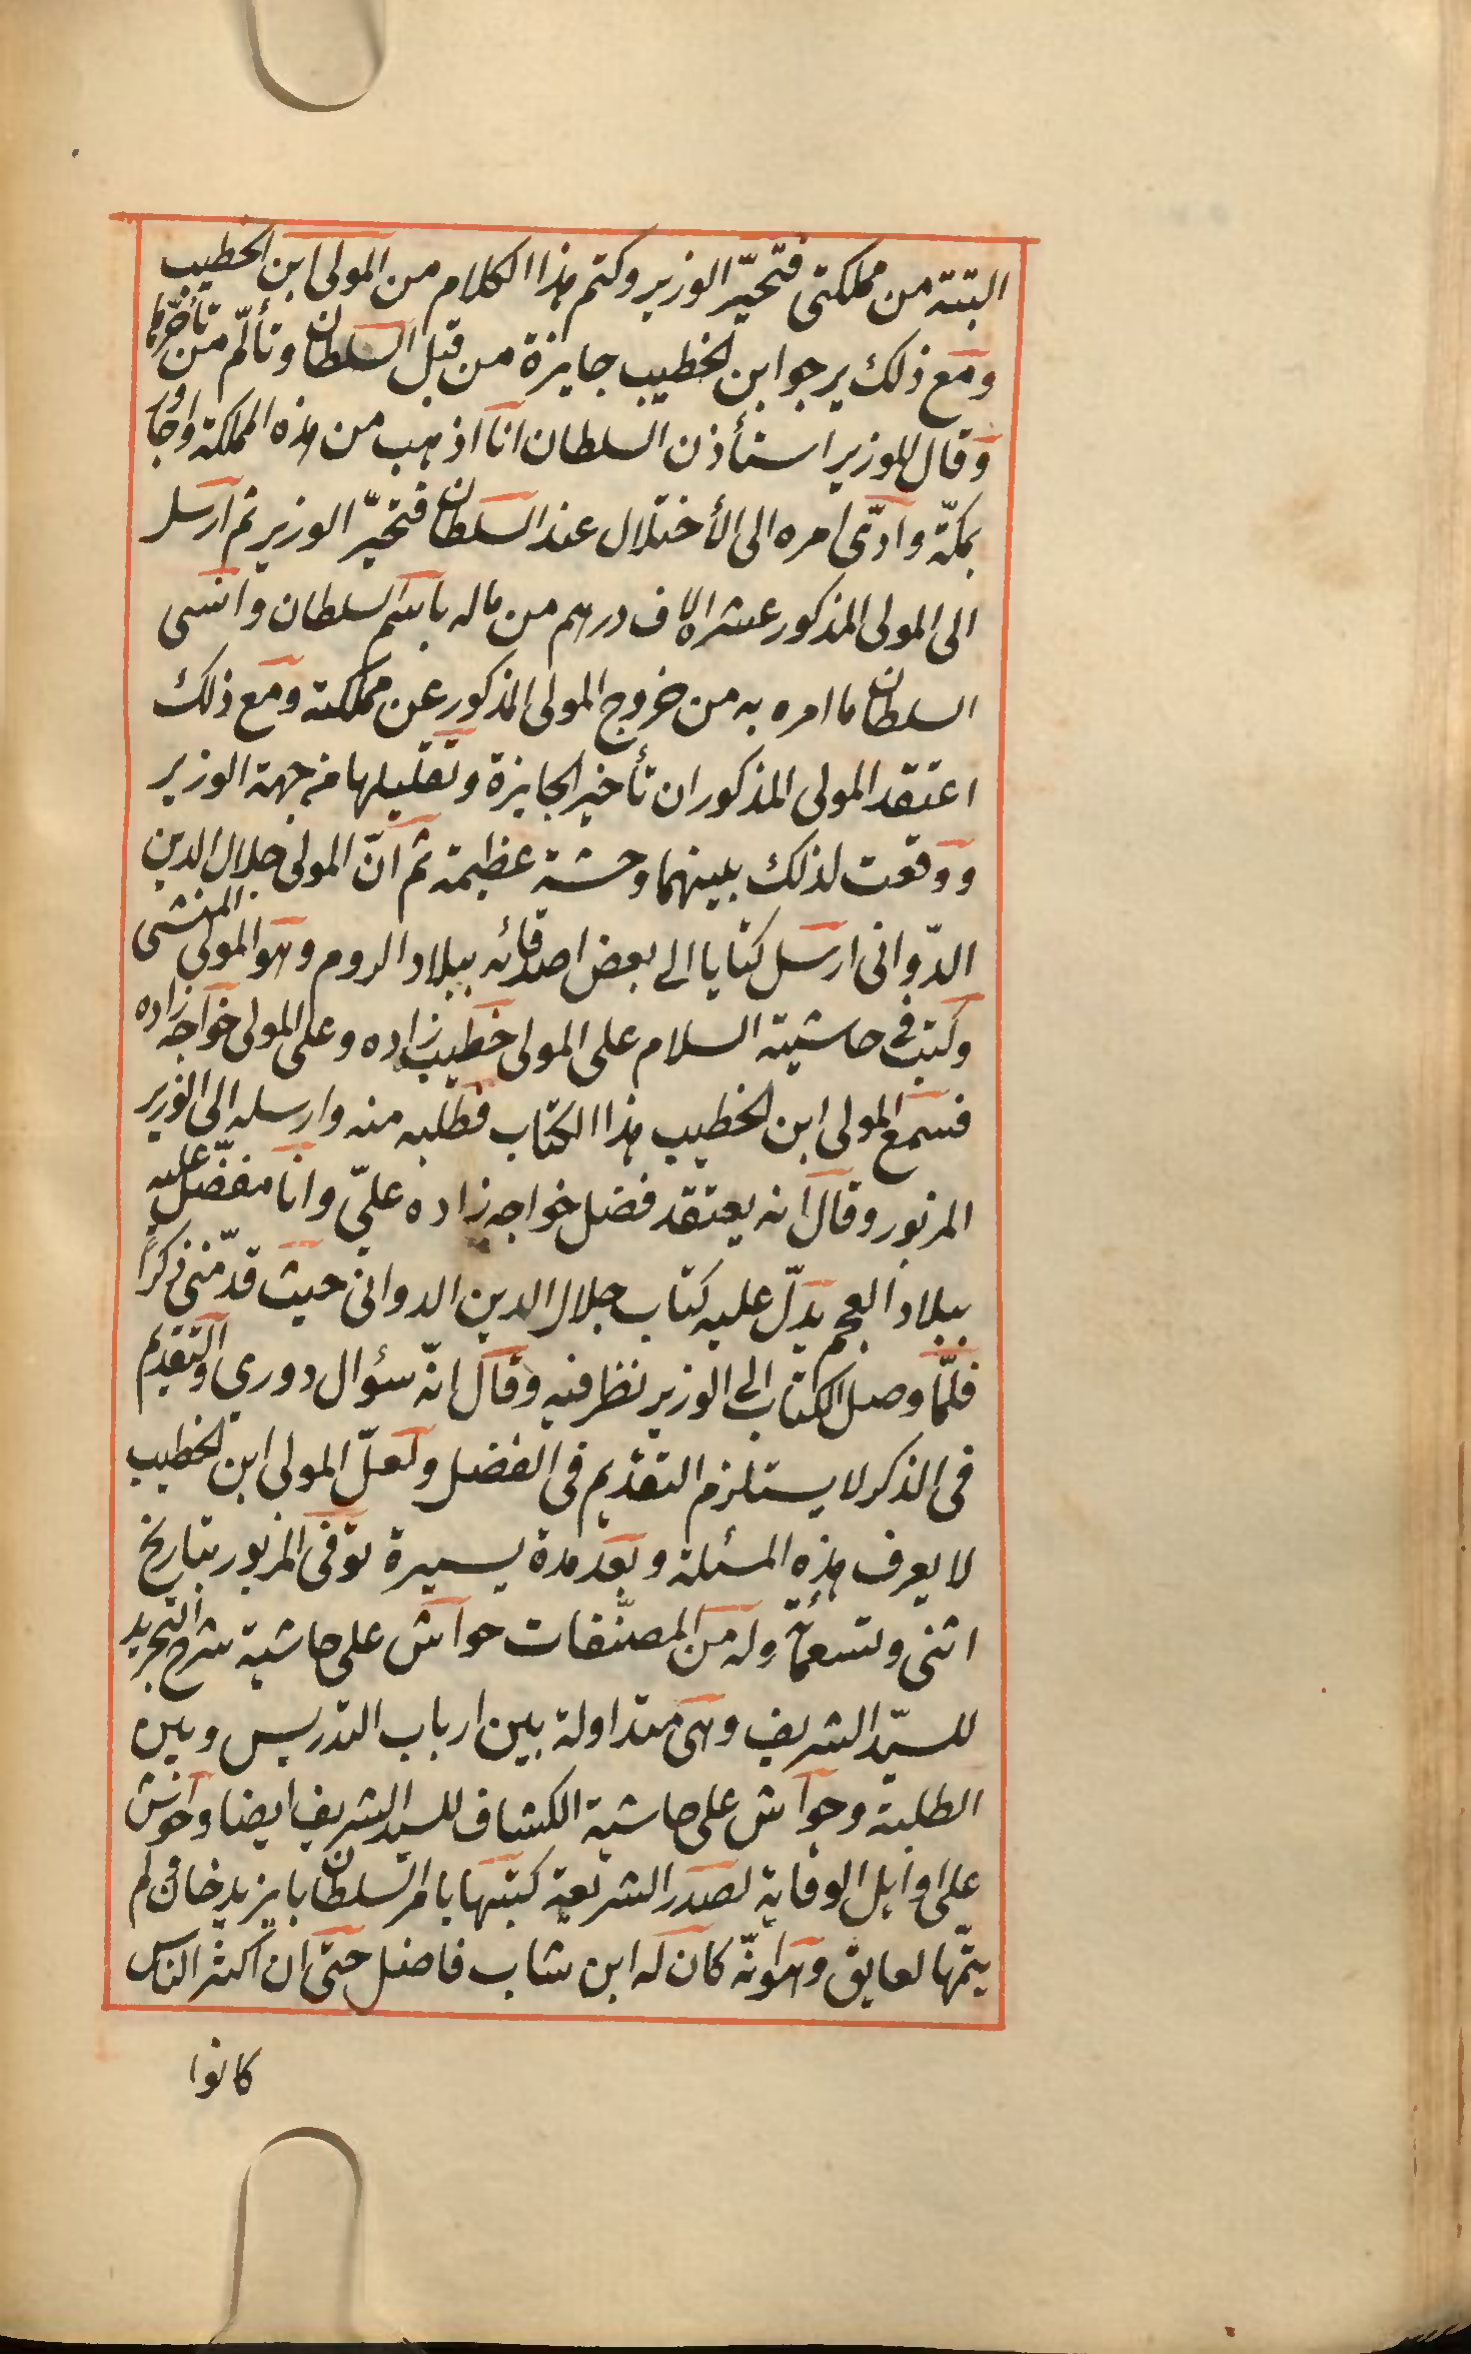 البتة من مملكتى فتحيّر الوزير وكتم هذا الكلام من المولى ابن الخطيب
ومع ذلك يرجو ابن الخطيب جايزة من قبل السلطان وتألّم من تأخّرها
وقال للوزير استأذن السلطان انا اذهب من هذه المملكة واجاور
بمكّة وادّى امره الى الأختلال عند السلطان فتحيّر الوزير ثم ارسل
الى المولى المذكور عشر الاف درهم من ماله باسم السلطان وانسى
السلطان ما امره به من خروج المولى المذكور عن مملكته ومع ذلك
اعتقد المولى المذكور ان تأخير الجايزة وتقليلها من جهة الوزير
ووقعت لذلك بينهما وحشة عظيمة ثم انّ المولى جلال الدين
الدّوانى ارسل كتابا الى بعض اصدقائه ببلاد الروم وهو المولى المنشى
وكتب فى حاشيته السلام على المولى خطيب زاده وعلى المولى خواجه زاده
فسمع المولى ابن الخطيب هذا الكتاب فطلبه منه وارسله الى الوزير
المزبور وقال انه يعتقد فضل خواجه زاده علىّ وانا مفضّل عليه
ببلاد العجم يدلّ عليه كتاب جلال الدين الدوانى حيث قدّمنى ذكرًا
فلمّا وصل الكتاب الى الوزير نظر فيه وقال انّه سؤال دورى والتقديم
فى الذكر لا يستلزم التقديم فى الفضل ولعلّ المولى ابن الخطيب
لا يعرف هذه المسئلة وبعد مدة يسيرة توفى المزبور بتاريخ
اثنى وتسعمأئة وله من المصنّفات حواش على حاشية شرح التجريد
للسيّد الشريف وهى متداولة بين ارباب التدريس وبين
الطلبة وحواش على حاشية الكشاف للسيد الشريف ايضا وحواش
على اوايل الوقاية لصدر الشريعة كتبها بامر السلطان بايزيد خان لم
يتمّها لعايق وهو انّه كان له ابن شاب فاضل حتى ان اكثر الناس
كانوا